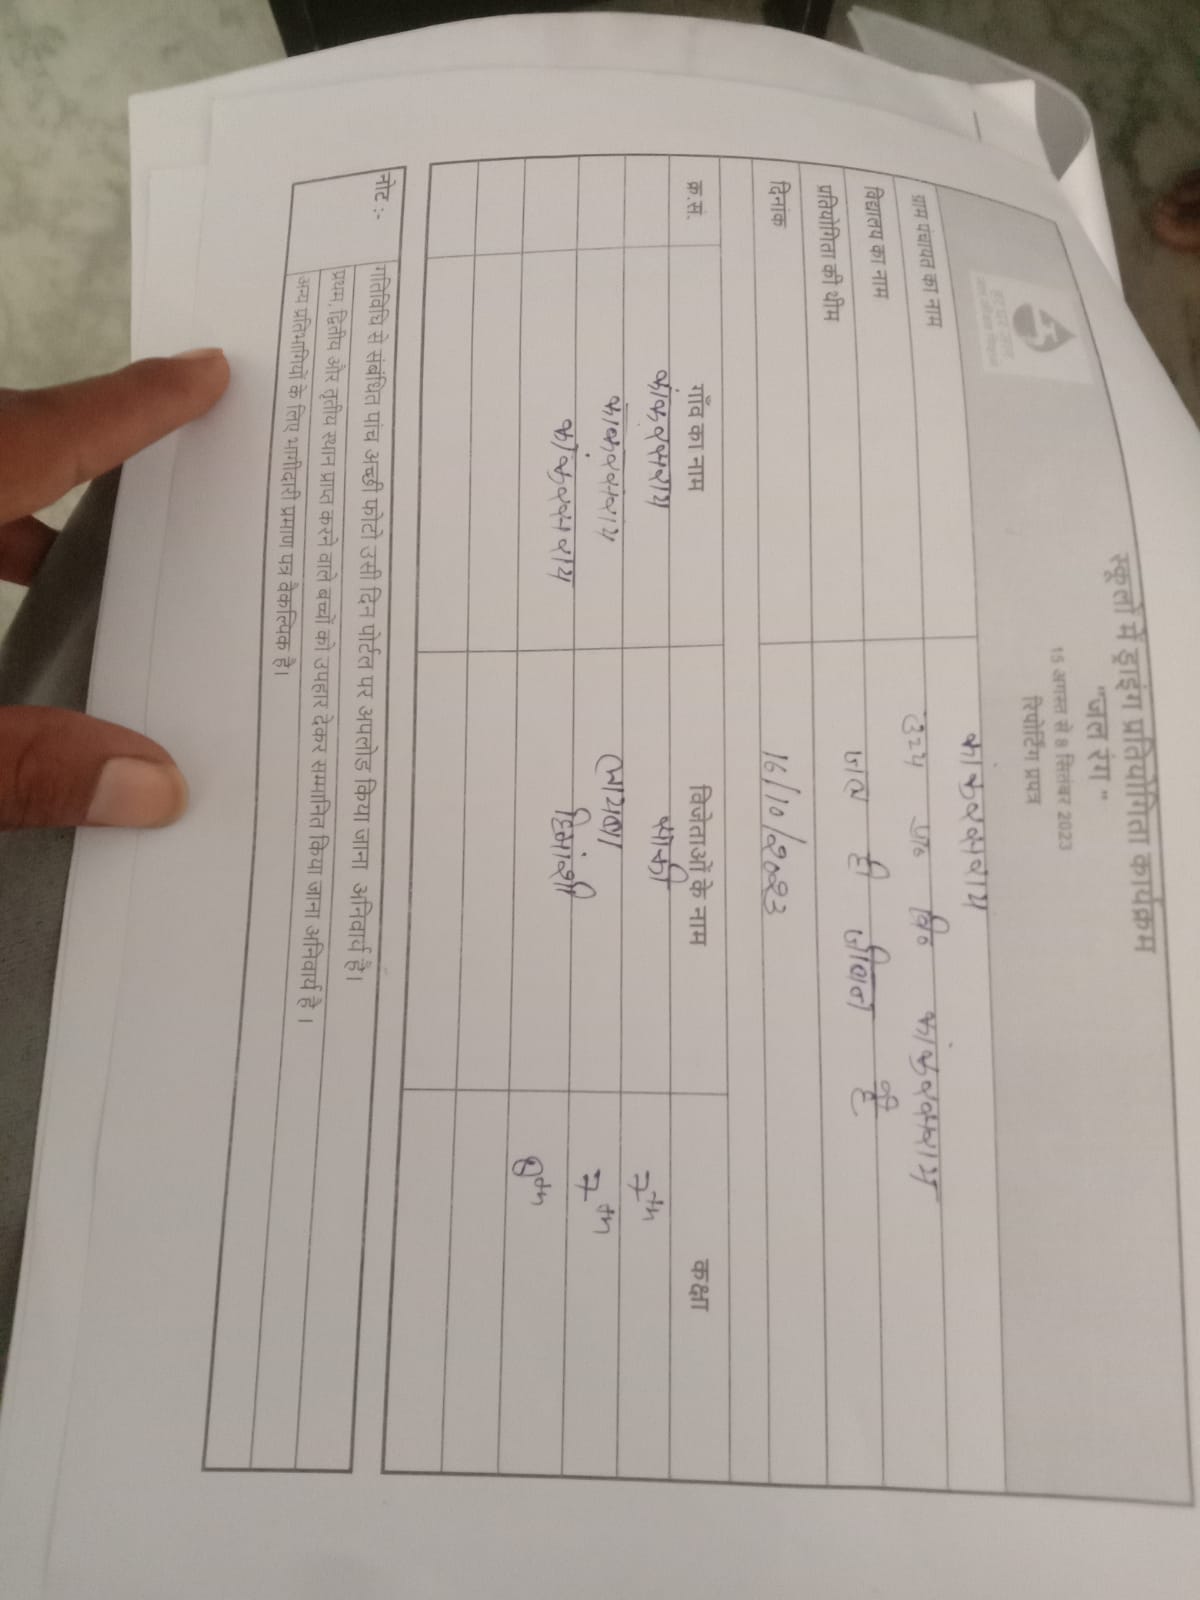 स्कूलों में ड्राइंग प्रतियोगिता कार्यक्रम
"जल रंग"
15 अगस्त से 8 सितंबर 2023
रिपोर्टिंग प्रपत्र
ग्राम पंचायत का नाम कांकरवसराय
विद्यालय का नाम वि० कांकरवसराय
प्रतियोगिता की थीम जल ही जीवन है
दिनांक 16/10/2023
क्र.सं. गाँव का नाम विजेताओं के नाम कक्षा
7th
7th
हिमांशी 8th
नोट :- गतिविधि से संबंधित पांच अच्छी फोटो उसी दिन पोर्टल पर अपलोड किया जाना अनिवार्य है।
प्रथम, द्वितीय और तृतीय स्थान प्राप्त करने वाले बच्चों को उपहार देकर सम्मानित किया जाना अनिवार्य है ।
अन्य प्रतिभागियों के लिए भागीदारी प्रमाण पत्र वैकल्पिक है।